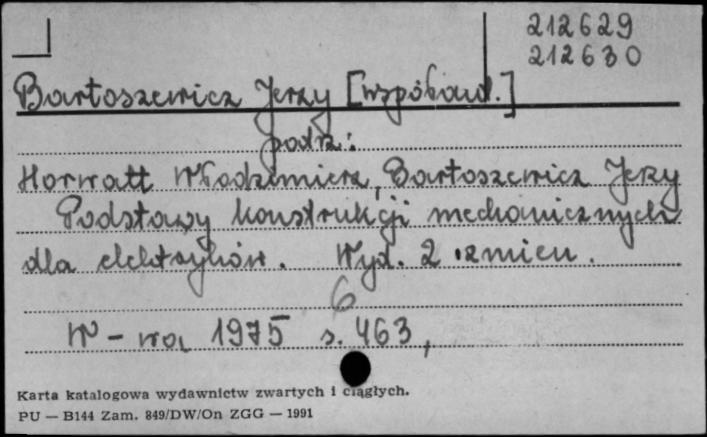 212629
212630
Bartoszewicz Jerzy [współaut.]
patrz:
Horwatt Włodzimierz, Bartoszewicz Jerzy
Podstawy konstrukcji mechanicznych
dla elektryków. Wyd. 2 zmien.
6
W-wa 1975 s. 463,
Karta katalogowa wydawnictw zwartych i ciągłych.
PU — B144 Zam. 849/DW/On ZGG — 1991